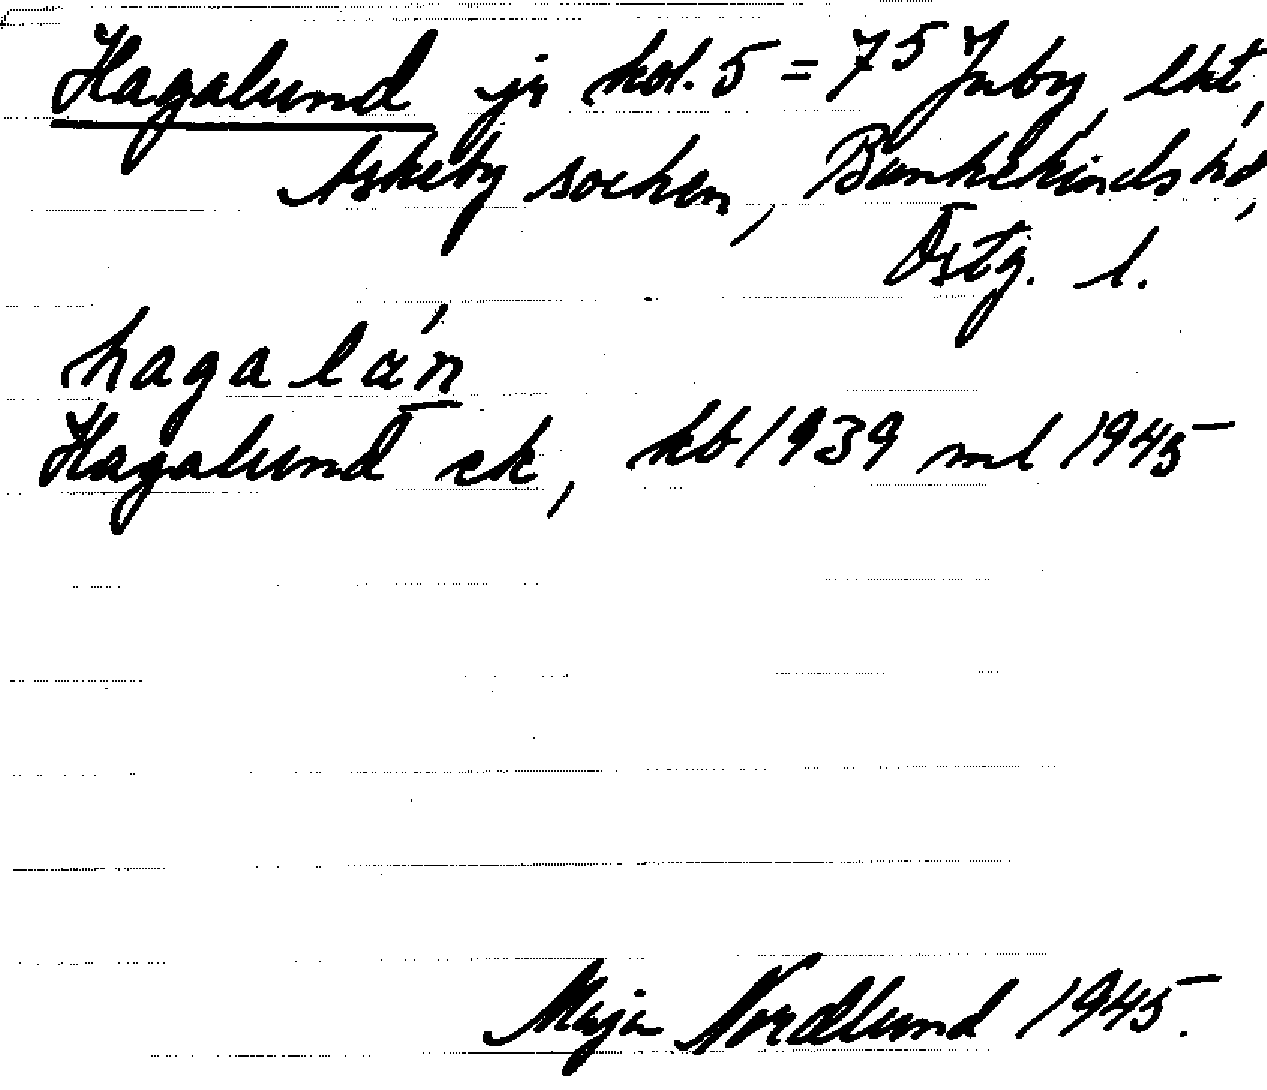 Hagalund jr kol. 5 = 75 Inby, lht,
Askeby socken, Bankekinds hd,
Östg. l.
hagalán
Hagalund ek, kb 1939 ml 1945
Maja Nordlund 1945.